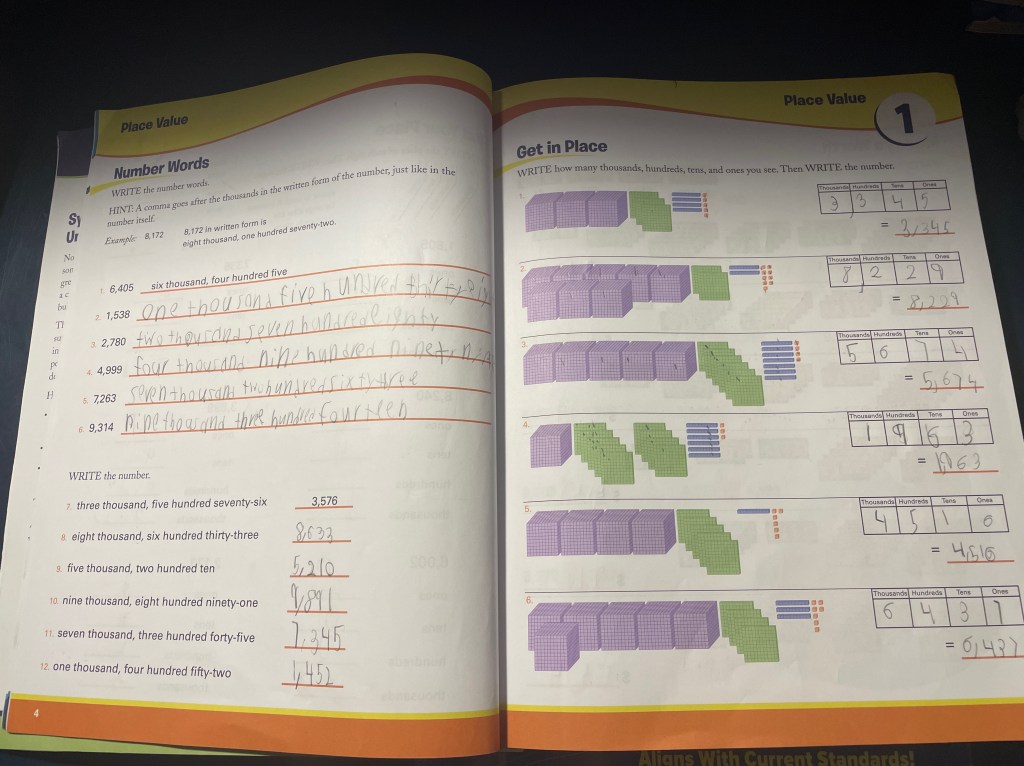 Place Value
Number Words
WRITE the number words.
HINT: A comma goes after the thousands in the written form of the number, just like in the
number itself.
Example: 8,172 8,172 in written form is
eight thousand, one hundred seventy-two.
1. 6,405 six thousand, four hundred five
2. 1,538 one thousand five hundred thirty six
3. 2,780 two thousand seven hundred eighty
4. 4,999 four thousand nine hundred
5. 7,263 seven thousand two hundred sixty three
6. 9,314 nine thousand three hundred fourteen
WRITE the number.
7. three thousand, five hundred seventy-six 3,576
8. eight thousand, six hundred thirty-three 8,633
9. five thousand, two hundred ten 5,210
10. nine thousand, eight hundred ninety-one 9,891
11. seven thousand, three hundred forty-five 7,345
12. one thousand, four hundred fifty-two 1,452
4
Place Value
1
Get in Place
WRITE how many thousands, hundreds, tens, and ones you see. Then WRITE the number.
1.
Thousands Hundreds Tens Ones
3 3 4 5
= 3,345
2.
Thousands Hundreds Tens Ones
8 2 2 9
= 8,229
3.
Thousands Hundreds Tens Ones
5 6 7 4
= 5,674
4.
Thousands Hundreds Tens Ones
1 9 6 3
= 1963
5.
Thousands Hundreds Tens Ones
4 5 1 0
=
6.
Thousands Hundreds Tens Ones
6 4 3 7
= 6,437
Aligns With Current Standards!